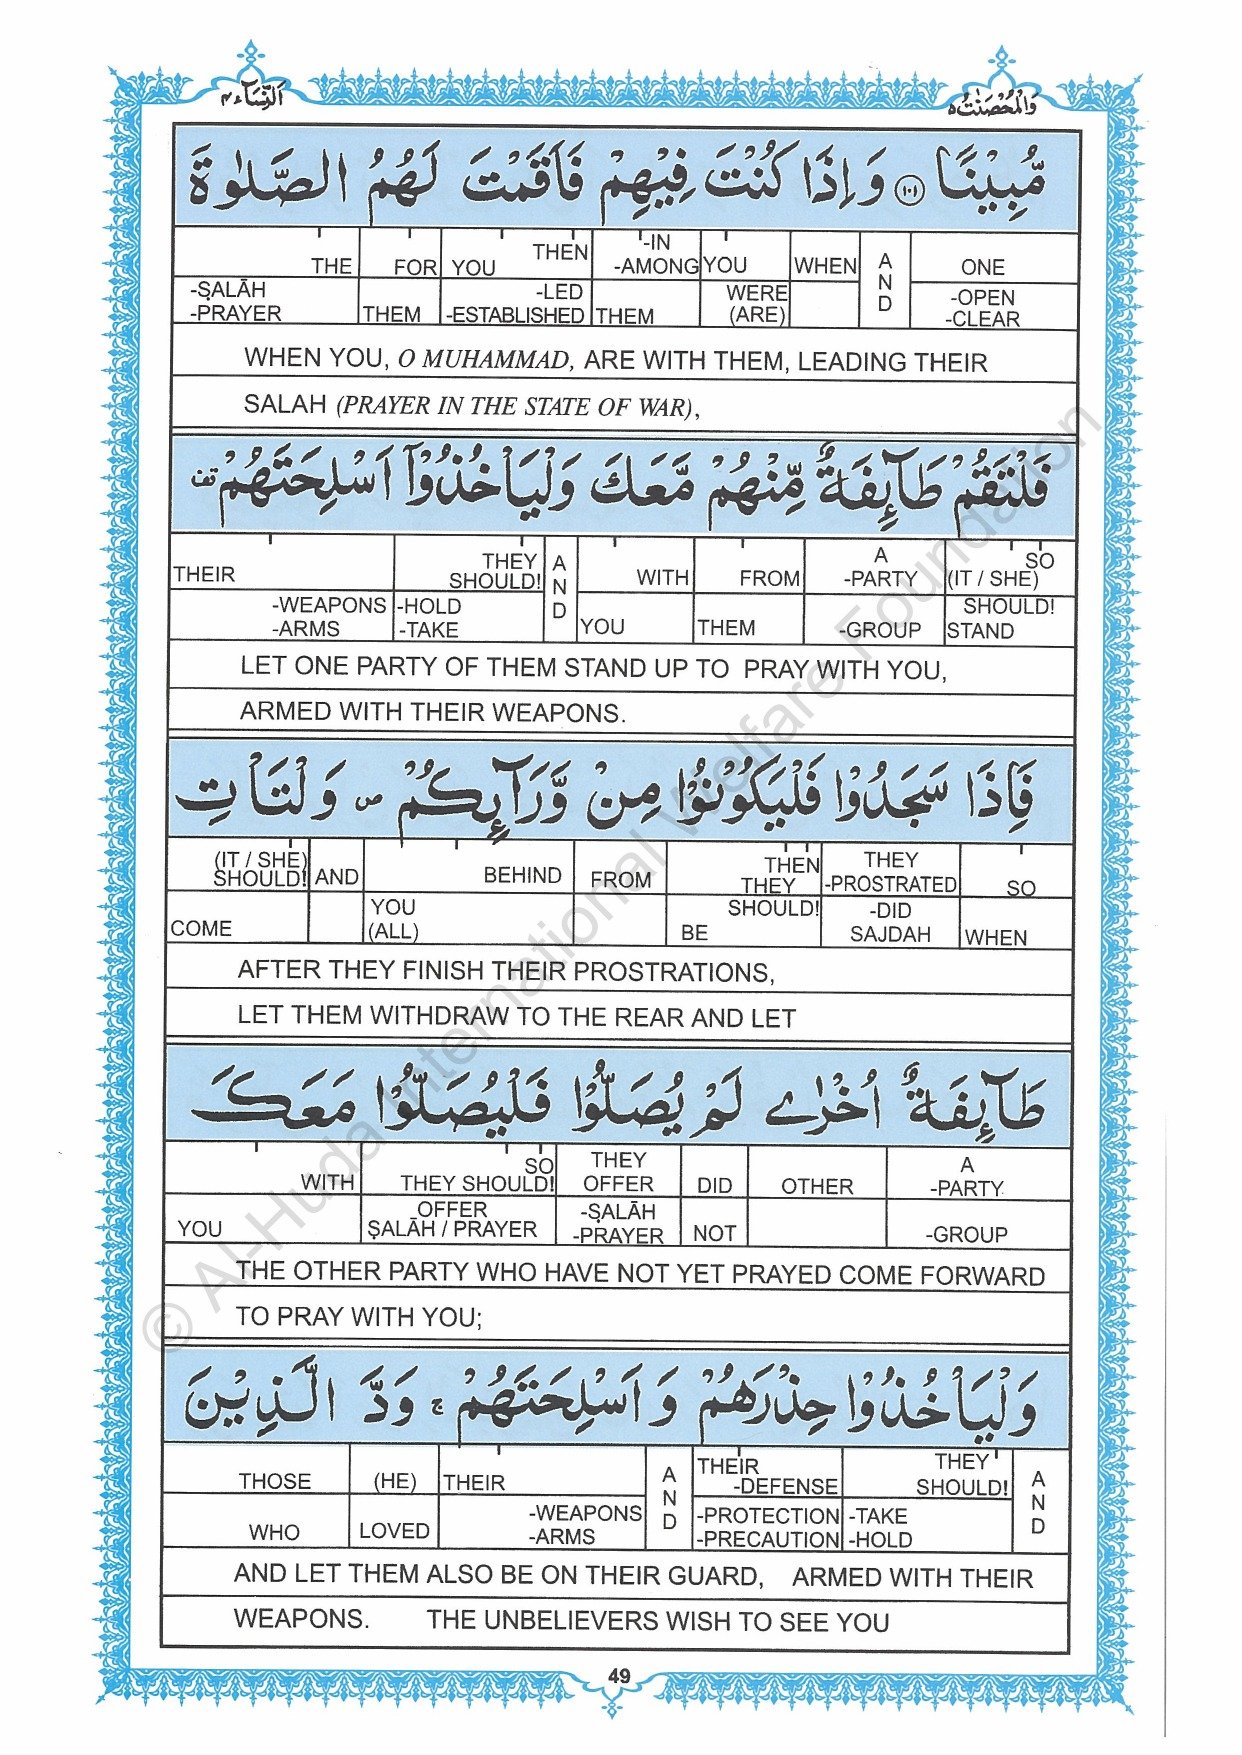 وَالْمُحْصَنٰتُ ٥
اَلنِّسَآء ٤
مُّبِيْنًا ١٠١ وَ اِذَا كُنْتَ فِيْهِمْ فَاَقَمْتَ لَهُمُ الصَّلٰوةَ
THE FOR YOU THEN -IN -AMONG YOU WHEN AND ONE
-ṢALĀH -PRAYER THEM -LED -ESTABLISHED THEM WERE (ARE) -OPEN -CLEAR
WHEN YOU, O MUHAMMAD, ARE WITH THEM, LEADING THEIR
SALAH (PRAYER IN THE STATE OF WAR),
فَلْتَقُمْ طَآئِفَةٌ مِّنْهُمْ مَّعَكَ وَلْيَاْخُذُوْۤا اَسْلِحَتَهُمْ قف
THEIR THEY SHOULD! AND WITH FROM A -PARTY SO (IT / SHE)
-WEAPONS -ARMS -HOLD -TAKE YOU THEM -GROUP SHOULD! STAND
LET ONE PARTY OF THEM STAND UP TO PRAY WITH YOU,
ARMED WITH THEIR WEAPONS.
فَاِذَا سَجَدُوْا فَلْيَكُوْنُوْا مِنْ وَّرَآئِكُمْ ص وَلْتَاْتِ
(IT / SHE) SHOULD! AND BEHIND FROM THEN THEY THEY -PROSTRATED SO
COME YOU (ALL) SHOULD! BE -DID SAJDAH WHEN
AFTER THEY FINISH THEIR PROSTRATIONS,
LET THEM WITHDRAW TO THE REAR AND LET
طَآئِفَةٌ اُخْرٰى لَمْ يُصَلُّوْا فَلْيُصَلُّوْا مَعَكَ
WITH SO THEY SHOULD! THEY OFFER DID OTHER A -PARTY
YOU OFFER ṢALĀH / PRAYER -ṢALĀH -PRAYER NOT -GROUP
THE OTHER PARTY WHO HAVE NOT YET PRAYED COME FORWARD
TO PRAY WITH YOU;
وَلْيَاْخُذُوْا حِذْرَهُمْ وَ اَسْلِحَتَهُمْ ج وَدَّ الَّذِيْنَ
THOSE (HE) THEIR AND THEIR -DEFENSE THEY SHOULD! AND
WHO LOVED -WEAPONS -ARMS -PROTECTION -PRECAUTION -TAKE -HOLD
AND LET THEM ALSO BE ON THEIR GUARD, ARMED WITH THEIR
WEAPONS. THE UNBELIEVERS WISH TO SEE YOU
49
© Al-Huda International Welfare Foundation